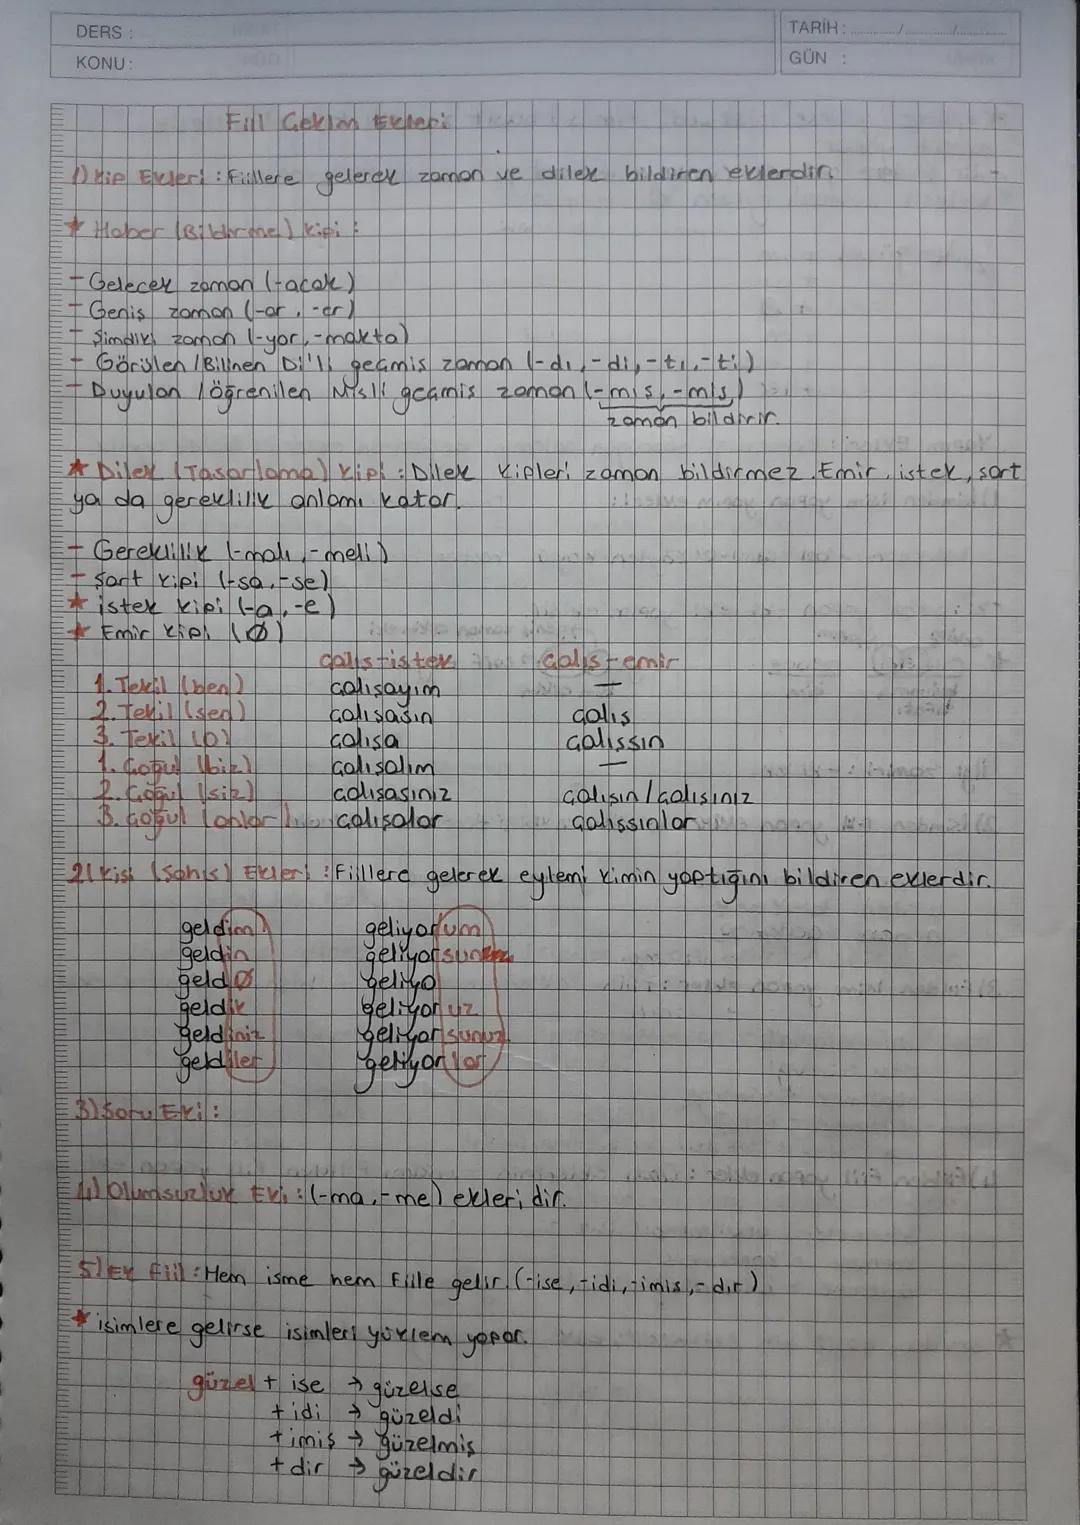 DERS :
KONU:
TARİH : ......... / ......... / .........
GÜN :
Fiil Çekim Ekleri
1) Kip Ekleri : Fiillere gelerek zaman ve dilek bildiren eklerdir.
* Haber (Bildirme) Kipi :
- Gelecek zaman (-acak)
- Geniş zaman (-ar, -er)
- Şimdiki zaman (-yor, -makta)
- Görülen /Bilinen Di'li geçmiş zaman (-dı, -di, -tı, -ti)
- Duyulan /öğrenilen Mişli geçmiş zaman (-mış, -miş)
zaman bildirir.
* Dilek (Tasarlama) Kipi : Dilek kipleri zaman bildirmez. Emir, istek, şart
ya da gereklilik anlamı katar.
- Gereklilik (-malı, -meli)
- Şart kipi (-sa, -se)
* istek kipi (-a, -e)
* Emir kipi (Ø)
çalış-istek çalış-emir
1. Tekil (ben) çalışayım —
2. Tekil (sen) çalışasın çalış
3. Tekil (o) çalışa çalışsın
1. Çoğul (biz) çalışalım —
2. Çoğul (siz) çalışasınız çalışın / çalışınız
3. Çoğul (onlar) çalışalar çalışsınlar
2) Kişi (Şahıs) Ekleri : Fiillere gelerek eylemi kimin yaptığını bildiren eklerdir.
geldim geliyorum
geldin geliyorsun
geldi Ø geliyo
geldik geliyoruz
geldiniz geliyorsunuz
geldiler geliyorlar
3) Soru Eki :
4) Olumsuzluk Eki : (-ma, -me) ekleridir.
5) Ek fiil : Hem isme hem fiile gelir. (-ise, -idi, -imiş, -dır)
* isimlere gelirse isimleri yüklem yapar.
güzel + ise → güzelse
+ idi → güzeldi
+ imiş → güzelmiş
+ dir → güzeldir